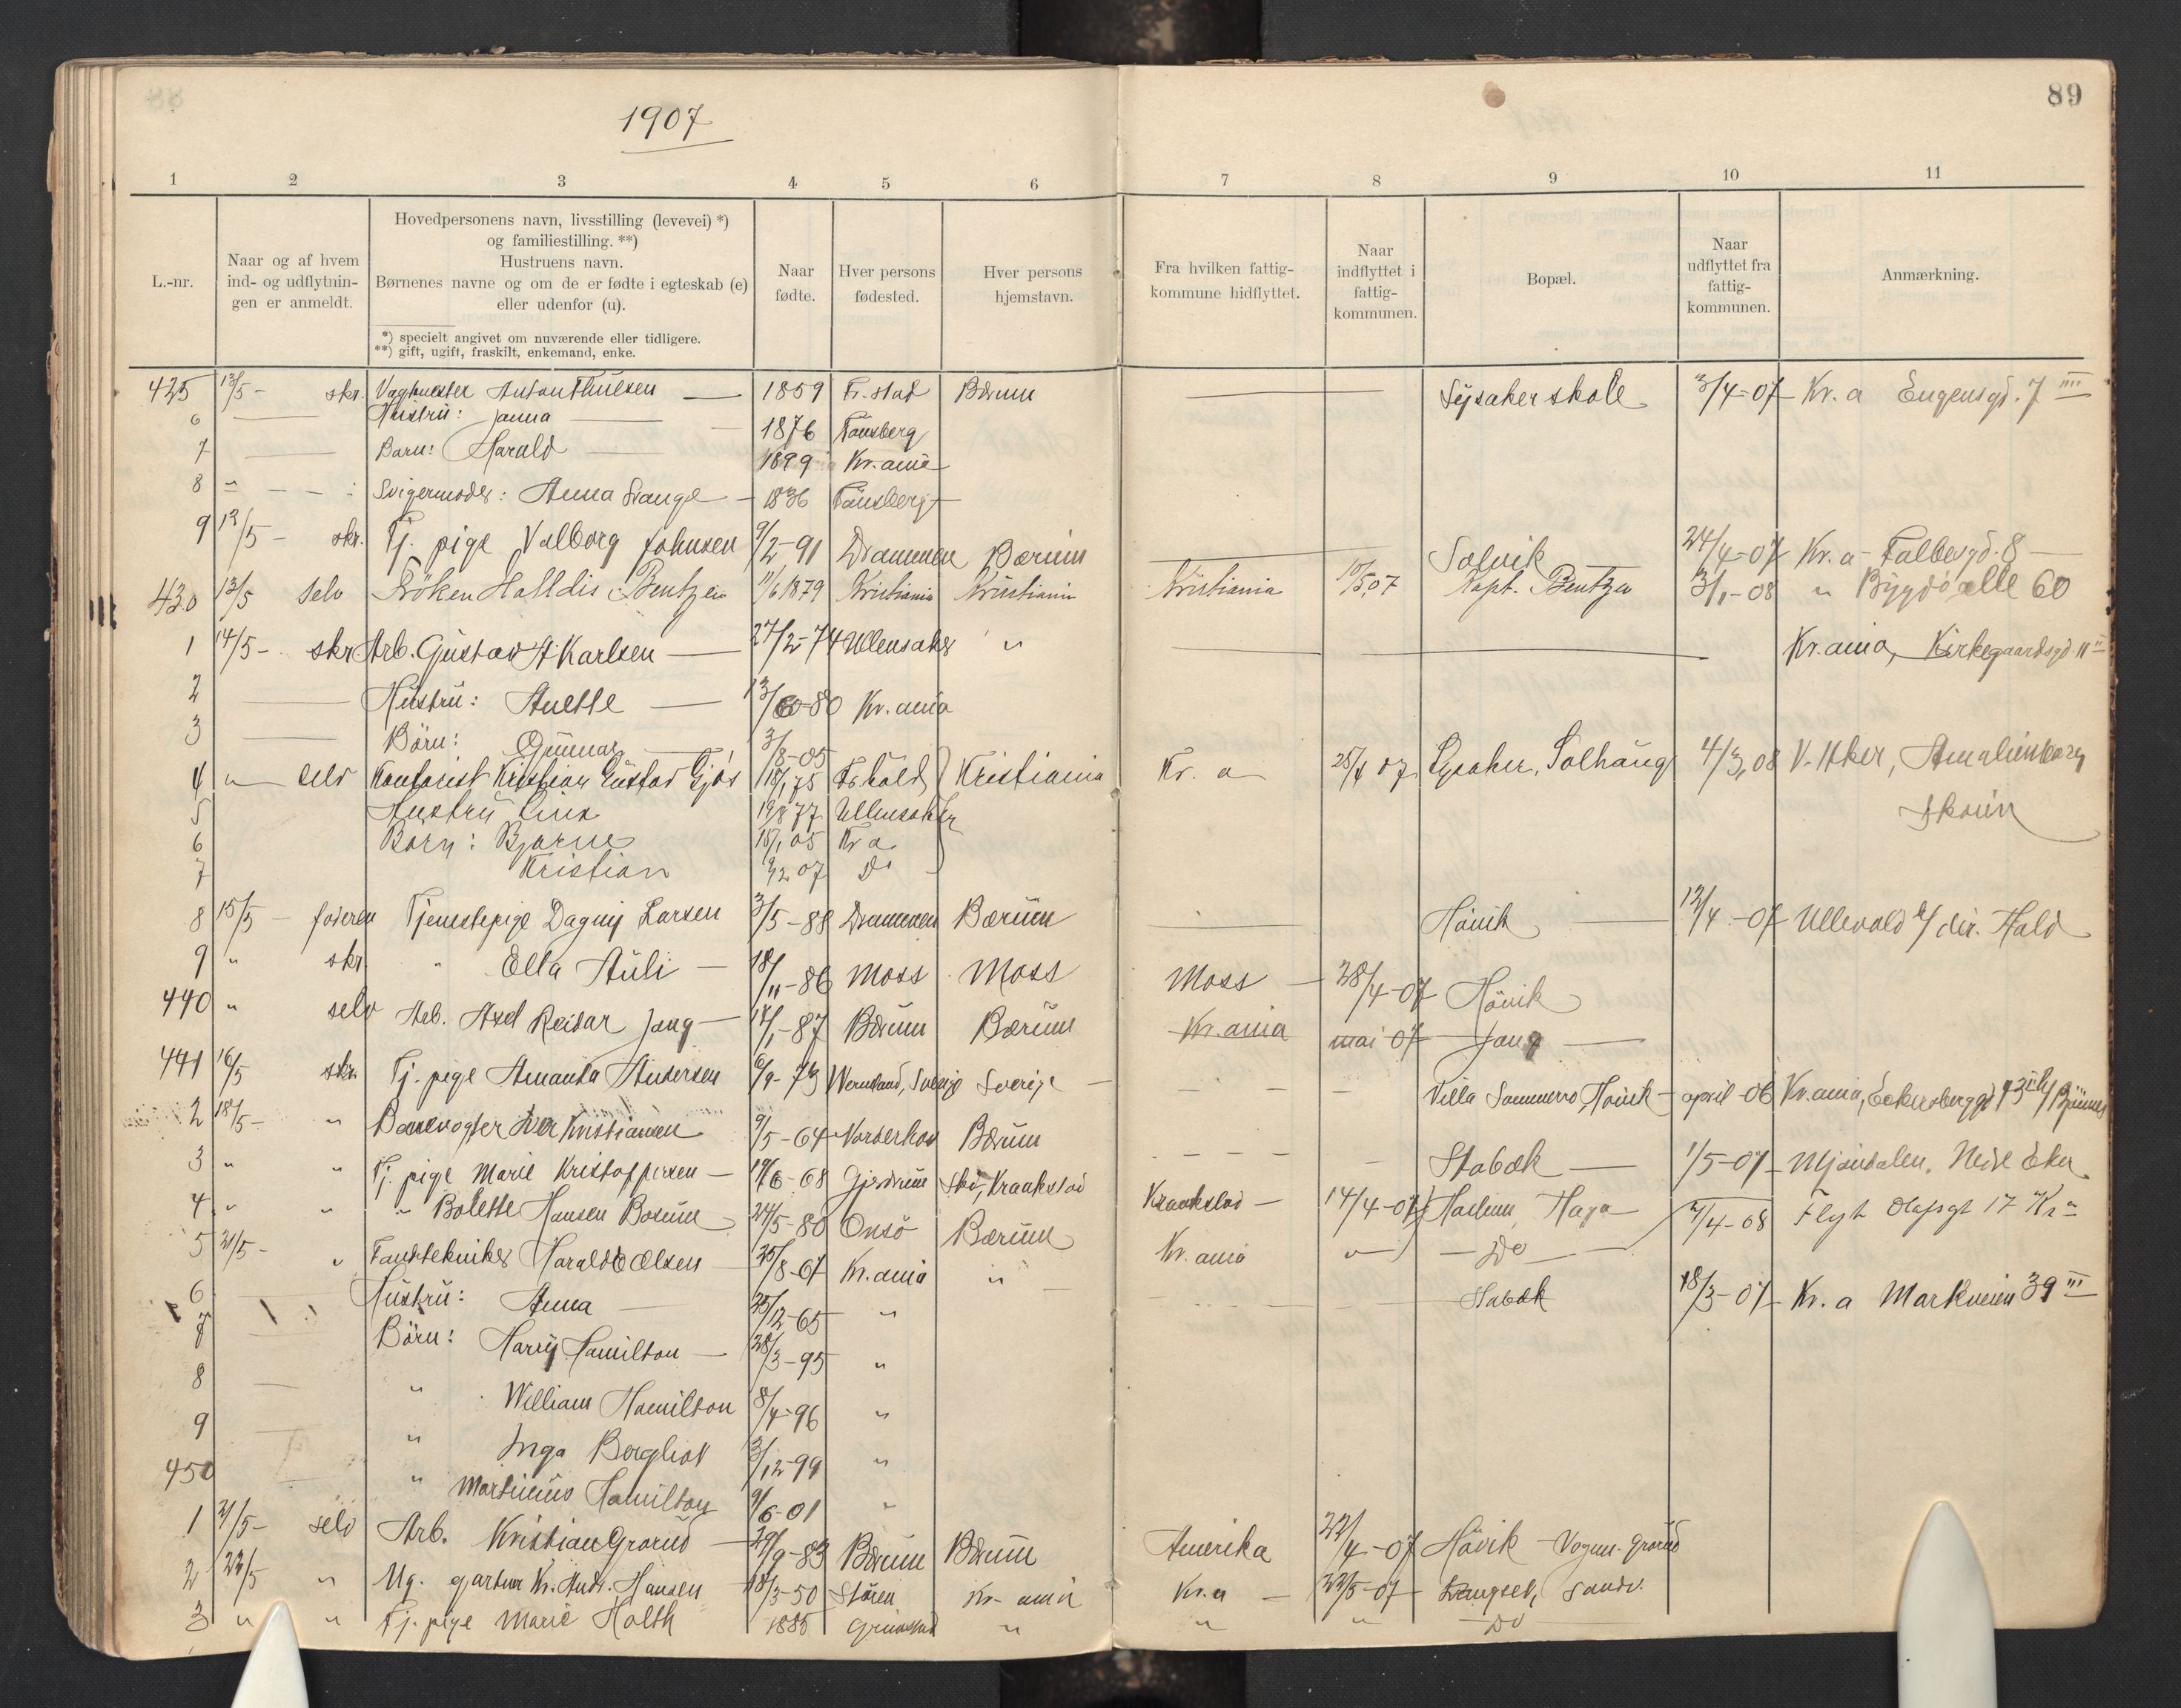 89
1907
1 2 3 4 5 6 7 8 9 10 11
L.-nr.
Naar og af hvem ind- og udflytnin-gen er anmeldt.
Hovedpersonens navn, livsstilling (levevei) *)
og familiestilling. **)
Hustruens navn.
Børnenes navne og om de er fødte i egteskab (e)
eller udenfor (u).
*) specielt angivet om nuværende eller tidligere.
**) gift, ugift, fraskilt, enkemand, enke.
Naar fødte.
Hver persons fødested.
Hver persons hjemstavn.
Fra hvilken fattig-kommune hidflyttet.
Naar indflyttet i fattig-kommunen.
Bopæl.
Naar udflyttet fra fattig-kommunen.
Anmærkning.
425 13/5 - skr. Vagtmester Anton Thuesen — 1859 Fr.stad Bærum — Lysaker skole 3/4-07 Kr.a Eugensgd. 7 III
6 — Hustru: Janna — 1876 Tønsberg
7 — Barn: Harald — 1899 Kr.ania
8 " Svigermoder: Anna Svange — 1836 Tønsberg
9 13/5 - skr. Tj. pige Valborg Johnsen 9/2-91 Drammen Bærum — Solvik 24/4-07 Kr.a - Falbergd. 8
430 13/5 selv Frøken Halldis Bentzen 11/6 1879 Kristiania Kristiania Kristiania 10/5,07 Kapt. Bentzen 3/1-08 " Bygdø alle 60
1 14/5 - skr Arb. Gustav A Karlsen — 27/2-74 Ullensaker " — Kr.ania, Kirkegaardsgd. 11 II
2 — Hustru: Anette — 80 Kr.ania
3 — Börn: Gunnar — 3/8-05
4 " selv Kontorist Kristian Gustav Gjøs 18/1 75 Fr.hald Kristiania Kr.a 25/4 07 Lysaker, Solhaug 4/3,08 V. Aker, Amalienborg
Skøien
5 Hustru Lina 19/8 77 Ullensaker
6 Barn: Bjarne 18/1 05 Kr a
7 Kristian 9/2 07 Do
8 15/5 - faderen Tjenestepige Dagny Larsen 3/5-88 Drammen Bærum — Hövik — 12/4-07 Ullevold h/ dir. Hald
9 " skr. " Ella Auli — 18/11-86 Moss Moss Moss — 28/4-07 Hövik
440 " selv Arb. Axel Reidar Jong — 14/1-87 Bærum Bærum Kr.ania mai 07 Jong —
441 16/5 skr. Tj. pige Amanda Andersen 6/9-73 Wermland, Sverige Sverige — Villa Sommerro, Hövik — april-06 Kr.ania, Eckersberggd 43
2 18/5 - " Banevogter Iver Kristiansen 9/5-64 Norderhov Bærum — Stabæk — 1/5-07 Mjøndalen, Nedre Eker
3 " " Tj. pige Marie Kristoffersen — 19/6-68 Gjerdrum Ski, Kraakstad Kraakstad — 14/4-07 Haslum, Haga 4/4-08 Flyt Olafsgt 17 Kr a
4 " " " Bolette Hansen Bøsum 24/5-80 Onsö Bærum Kr.ania " — Do —
5 21/5 - " Tandtekniker Harald E Olsen 25/8-67 Kr.ania " — Stabæk 18/3-07 Kr.a Markveien 39 III
6 Hustru: Anna — 25/12-65 "
7 — Börn: Harry Hamilton — 28/3-95 "
8 — " William Hamilton 8/4-96 "
9 — " Inga Bergliot 3/12-99 "
450 — " Martinius Hamilton 9/6-01 "
1 21/5 - selv Arb. Kristian Grorud — 29/9-83 Bærum Bærum Amerika 22/4-07 Hövik - Vogm. Grorud
2 22/5 " Ug. gartner Kr. Andr. Hansen — 18/3-50 Stören Kr-ania Kr.a — 22/5-07 Langset, Sandv.
3 " " Tj. pige Marie Holth 1885 Grimstad " " " Do